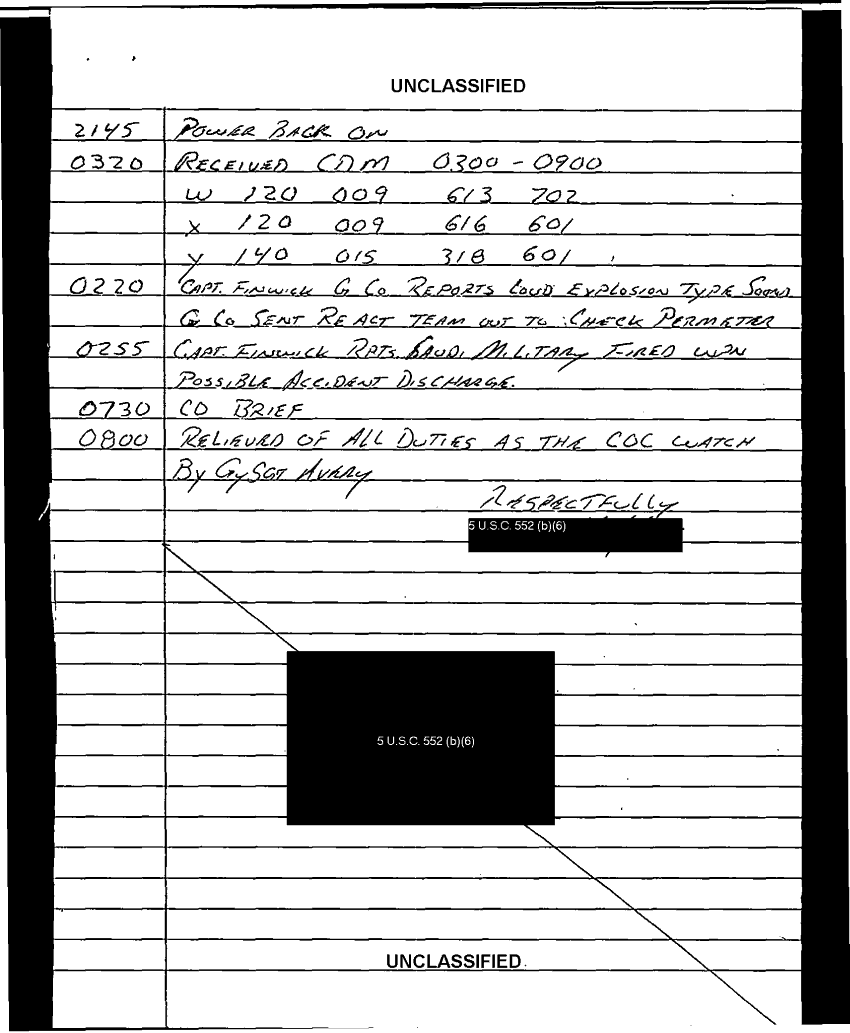 UNCLASSIFIED
2145 POWER BACK ON
0320 RECEIVED CDM 0300 - 0900
W 120 009 613 702
X 120 009 616 601
Y 140 015 318 601
0220 CAPT. FINWICK G CO REPORTS LOUD EXPLOSION TYPE SOUND
G CO SENT REACT TEAM OUT TO CHECK PERMETER
0255 CAPT. FINWICK RPTS. SAUDI MILITARY FIRED WPN
POSSIBLE ACCIDENT DISCHARGE.
0730 CO BRIEF
0800 RELIEVED OF ALL DUTIES AS THE COC WATCH
By GySGT AVERY
RESPECTFULLY
5 U.S.C. 552 (b)(6)
5 U.S.C. 552 (b)(6)
UNCLASSIFIED